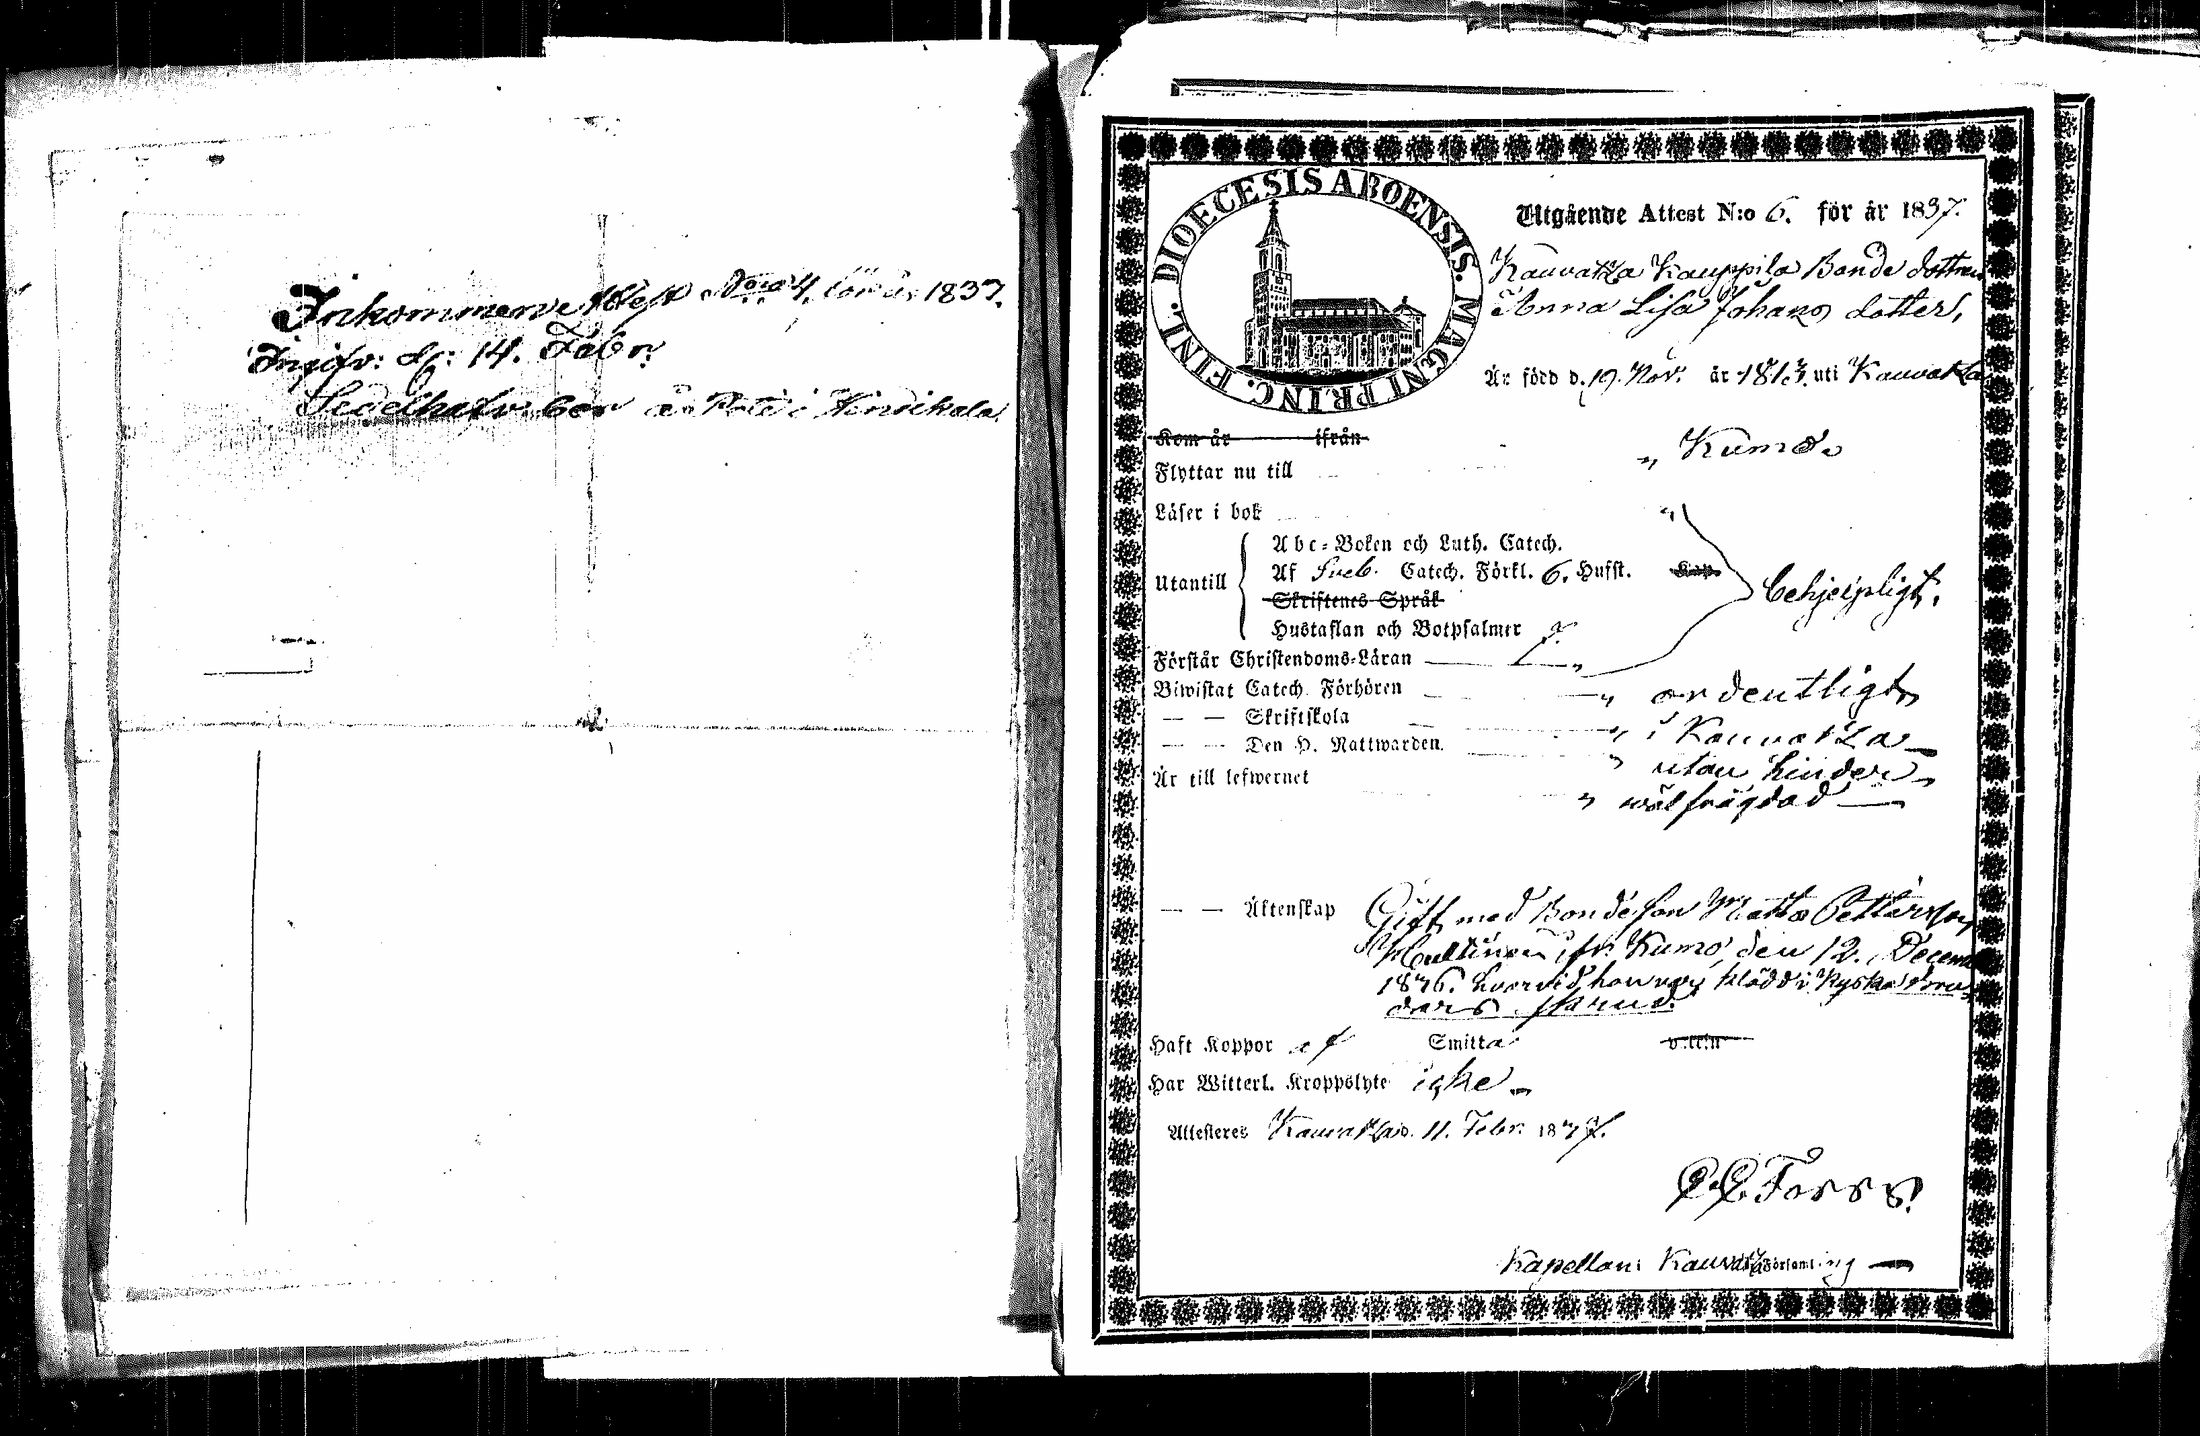 Inkommande Attest No: 4. för år 1837.
Ingifv: d: 14. Febr:
Sedelhafvaren är Rote i
DIOECESIS ABOENSIS. MAGNI PRINC. FINL.
Utgående Attest N:o 6. för år 1837.
Kauvatza Kauppila Bonde dottren
Anna Lisa Johans dotter,
Är född d. 19. Nov. år 1813. uti Kauvatza
Kom år ifrån
Flyttar nu till „ Kumo.
Läser i bok „
Abc-Boken och Luth. Catech.
Utantill
Af Sveb. Catech. Förkl. 6. Hufst. Kap.
Skriftenes Språk
begripligt.
Hustaflan och Botpsalmer
Förstår Christendoms-Läran „
Biwistat Catech. Förhören „ ordentligt
— — Skriftskola „ i Kauvatza
— — Den H. Nattwarden. „ utan hinder
Är till lefwernet „ wälfrägdad —
— — Äktenskap Gift med Bondeson Matts Pettersson
fr: Kumo, den 12. Decemb
1836. hvarvid hon var klädd i Kyska
skrud.
Haft Koppor af Smitta vaccin
Har Witterl. Kroppslyte icke
Attesteres Kauvatza d. 11. Febr. 1837.
Forss
Kapellan i Kauvatza Församling —